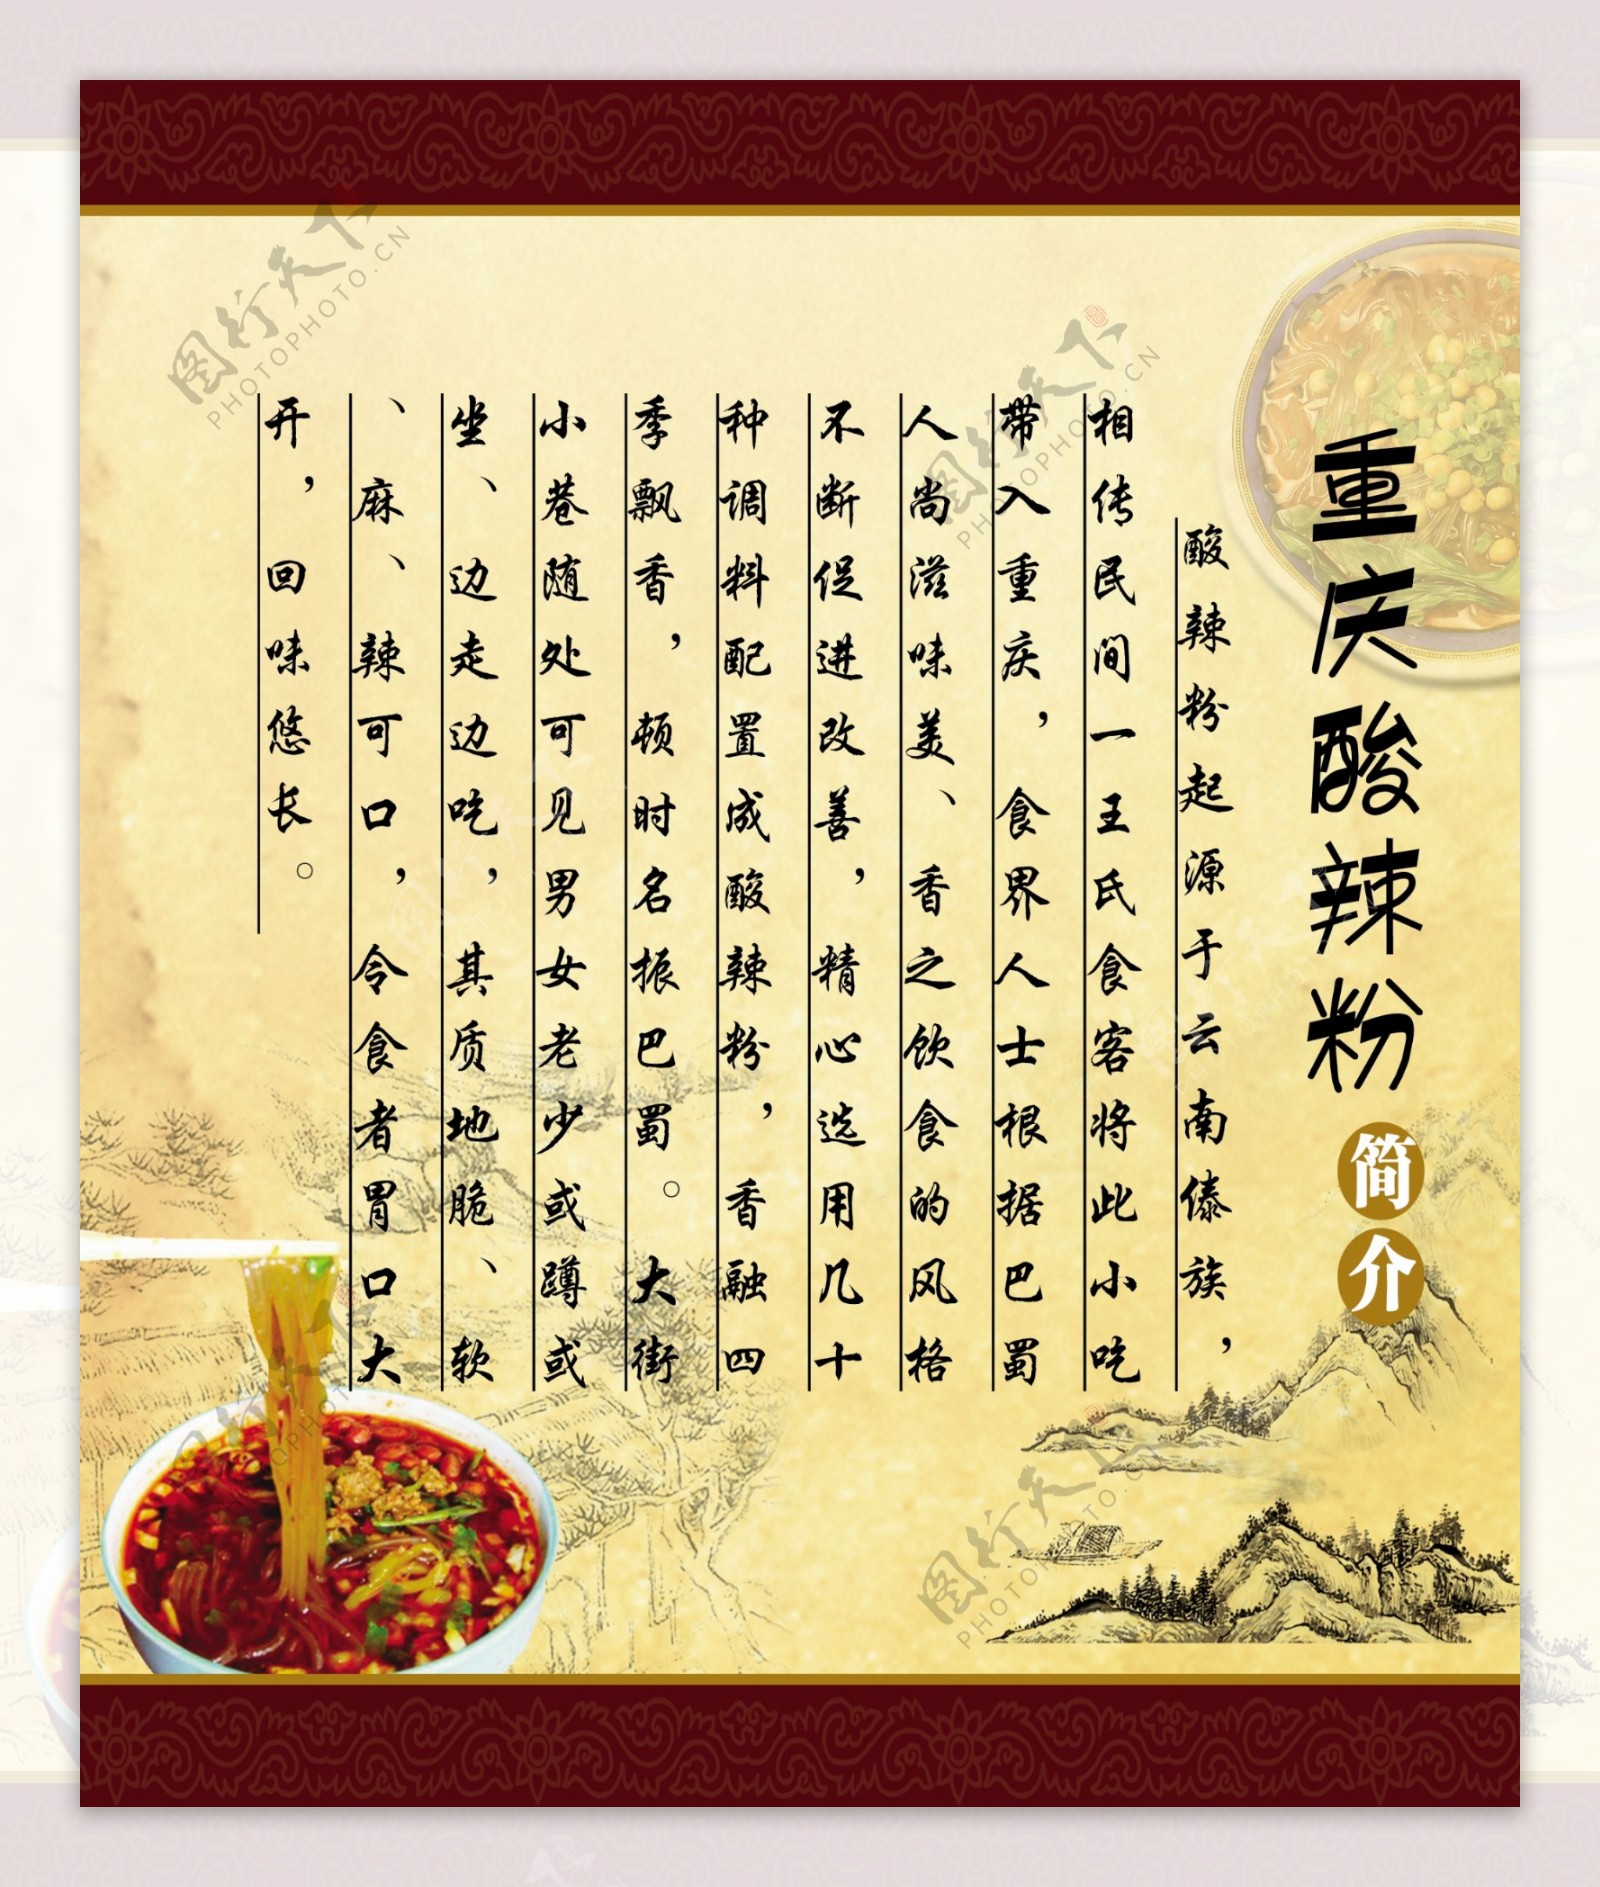 重庆酸辣粉
简介
酸辣粉起源于云南傣族，
相传民间一王氏食客将此小吃
带入重庆，食界人士根据巴蜀
人尚滋味美、香之饮食的风格
不断促进改善，精心选用几十
种调料配置成酸辣粉，香融四
季飘香，顿时名振巴蜀。大街
小巷随处可见男女老少或蹲或
坐、边走边吃，其质地脆、软
、麻、辣可口，令食者胃口大
开，回味悠长。
图行天下
PHOTOPHOTO.CN
图行天下
PHOTOPHOTO.CN
图行天下
PHOTOPHOTO.CN